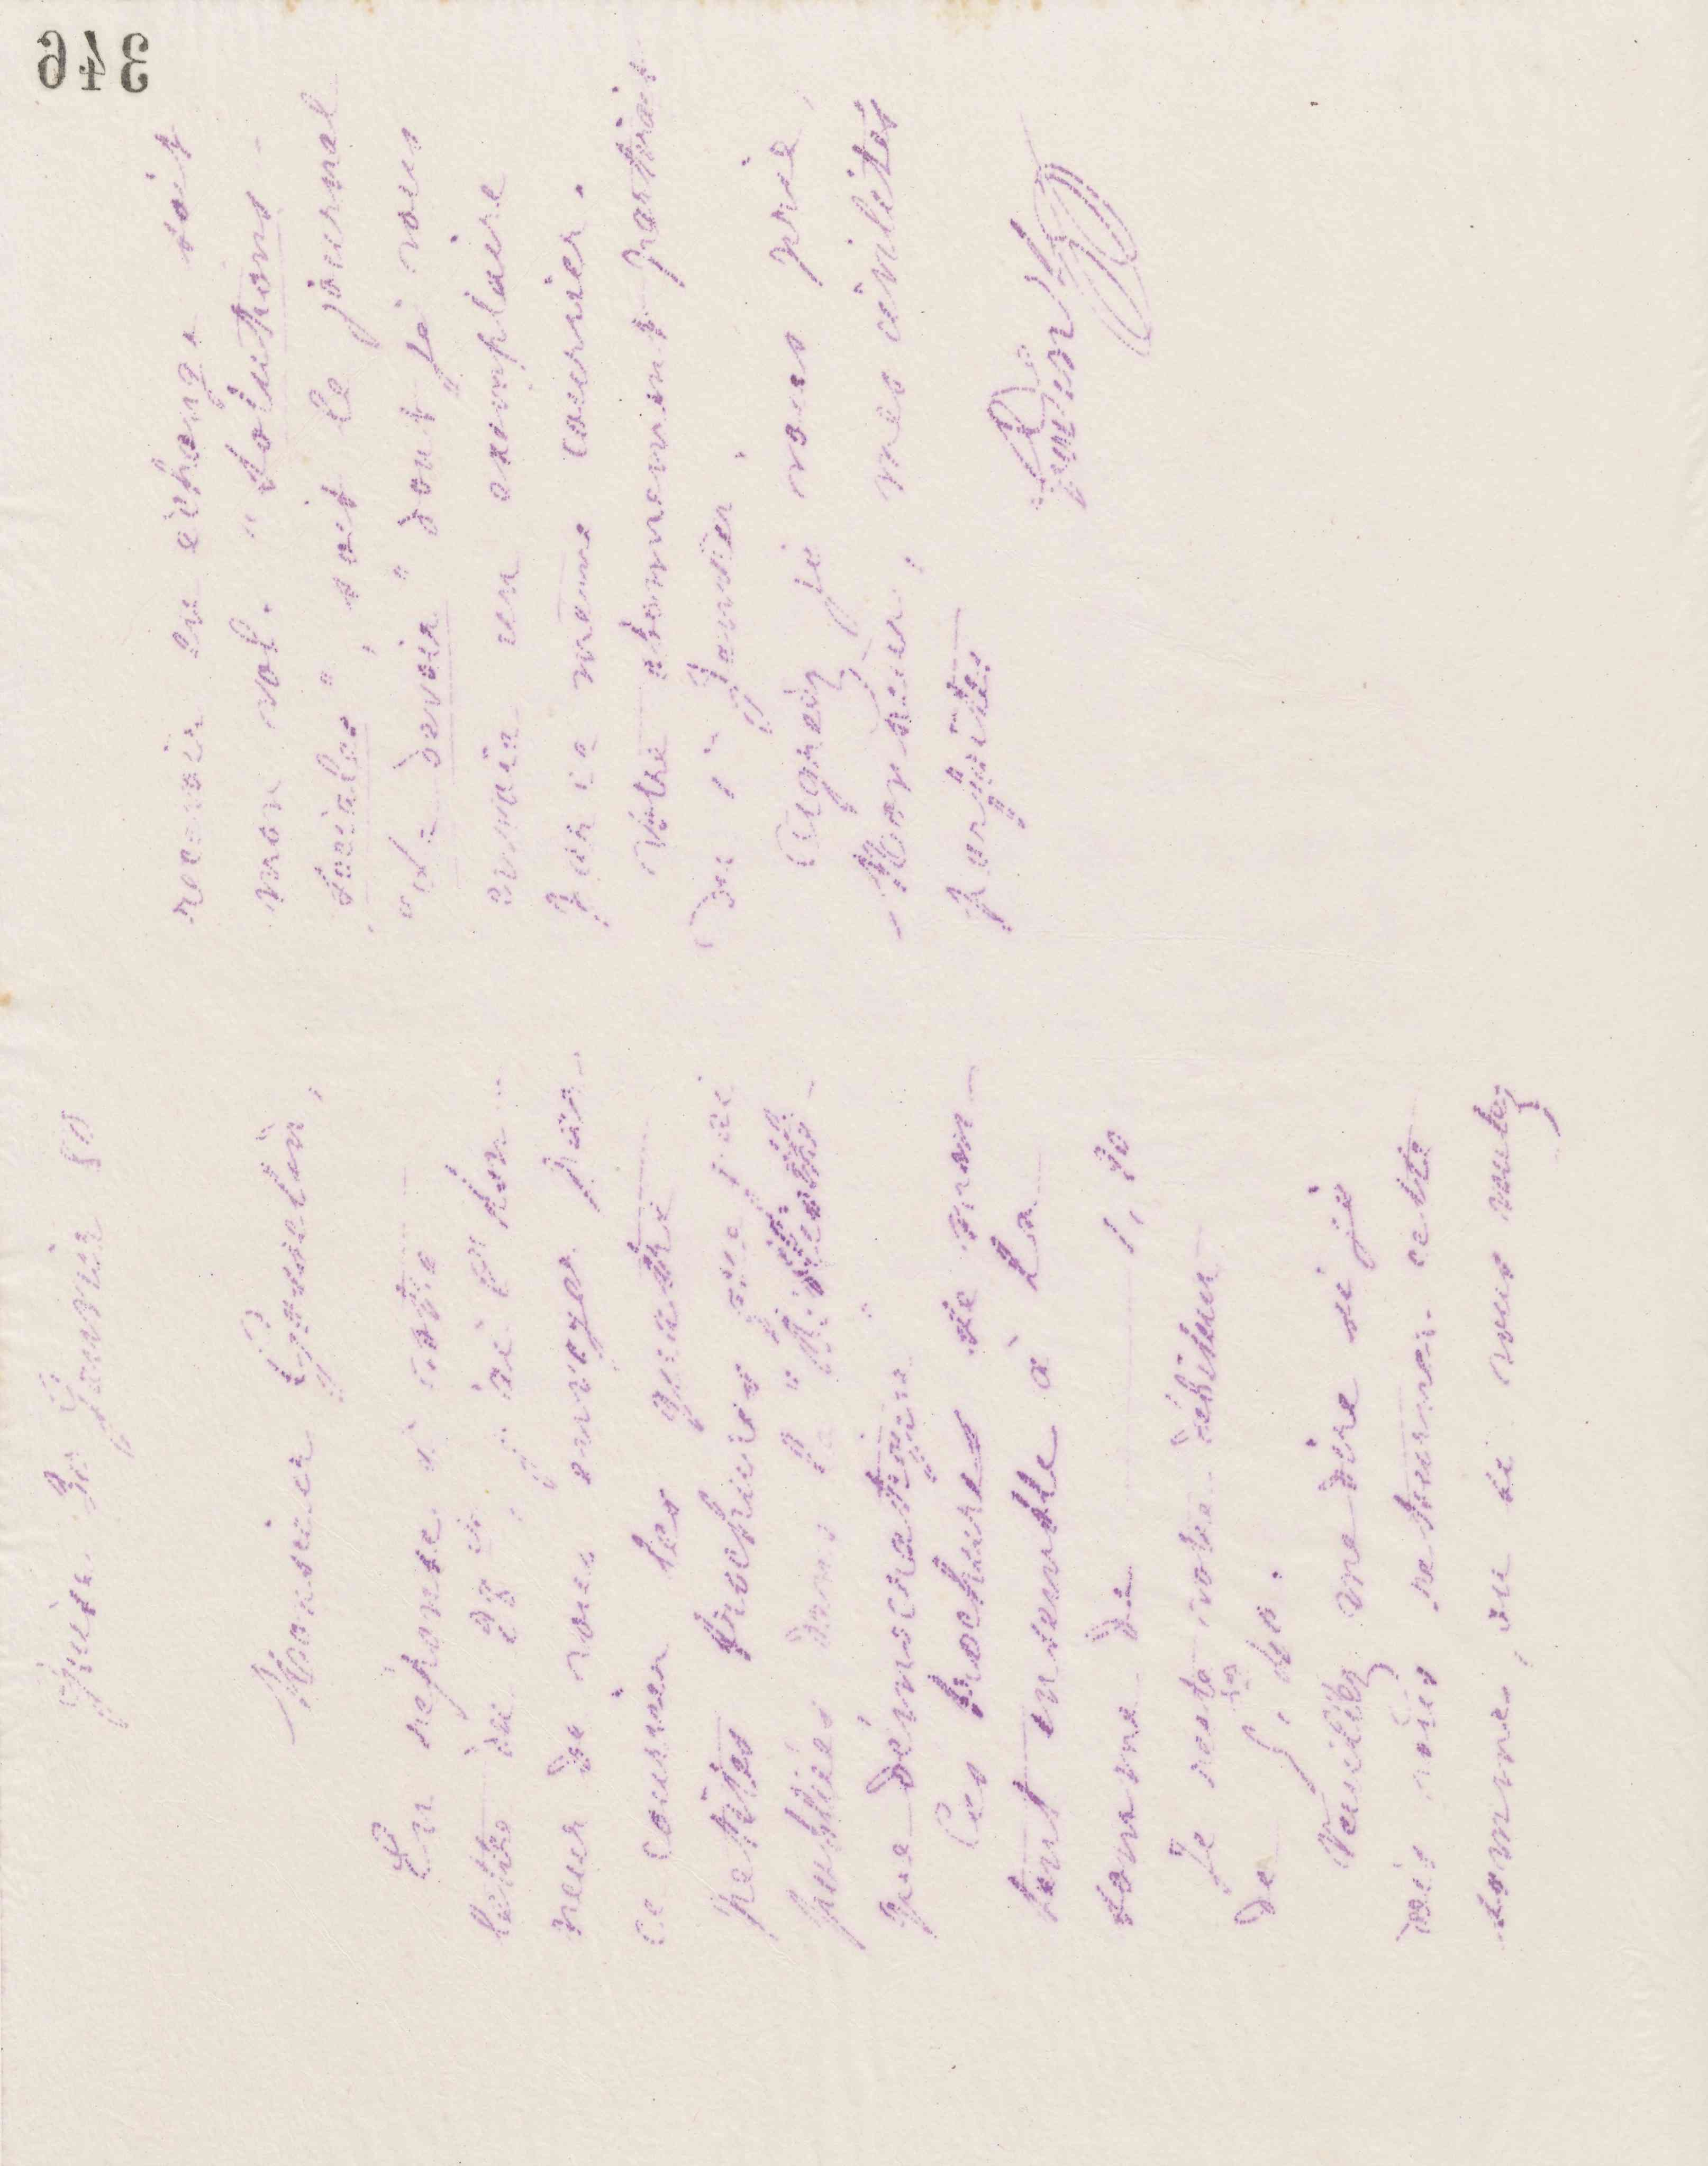 346
Guise 30 Janvier 80
Monsieur Gosselin,
En réponse à votre
lettre du 28 ct, j'ai l'hon-
neur de vous envoyer par
ce courrier les quatre
petites brochures que j'ai
publiées dans la
que démocratique"
Ces brochures se mon-
tent ensemble à la
somme de 1,30
Je reste votre débiteur
de
Veuillez me dire si je
dois vous retourner cette
somme, ou si vous voulez
recevoir en échange soit
mon vol. "Solutions
sociales", soit le journal
"Le devoir" dont je vous
envoie un exemplaire
par ce même courrier.
Votre abonnement partirait
du 1er Janvier.
Agréez je vous prie,
Monsieur, mes civilités
parfaites
Godin